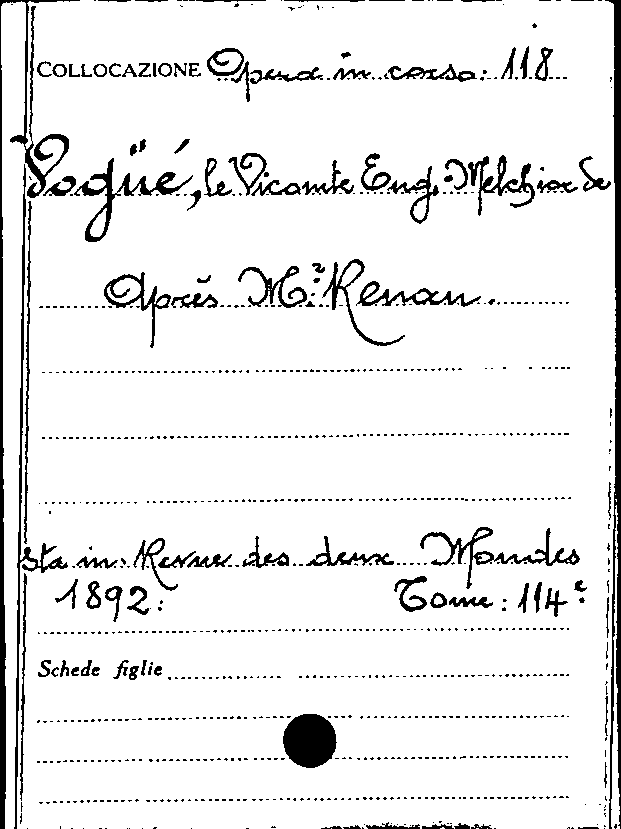 COLLOCAZIONE Opera in corso: 118
Vogüé, le Vicomte Eug. Melchior de
Après Mr. Renan.
sta in Revue des deux Mondes
1892: Tome: 114e
Schede figlie